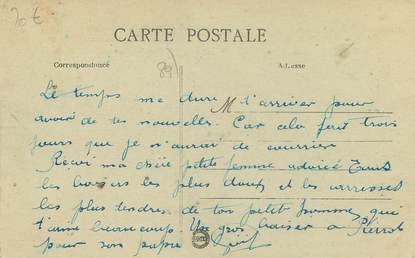 30 €
CARTE POSTALE
Correspondance
Adresse
89
Le temps me dure M t'arriver pour
avoir de tes nouvelles. Car cela ferait trois
jours que je n'aurai de courrier
Reçoi ma chérie petite femme
les baisers les plus doux et les carresses
les plus tendres de ton petit homme qui
t'aime beaucoup. Un gros baiser a Pierrot
pour son papa